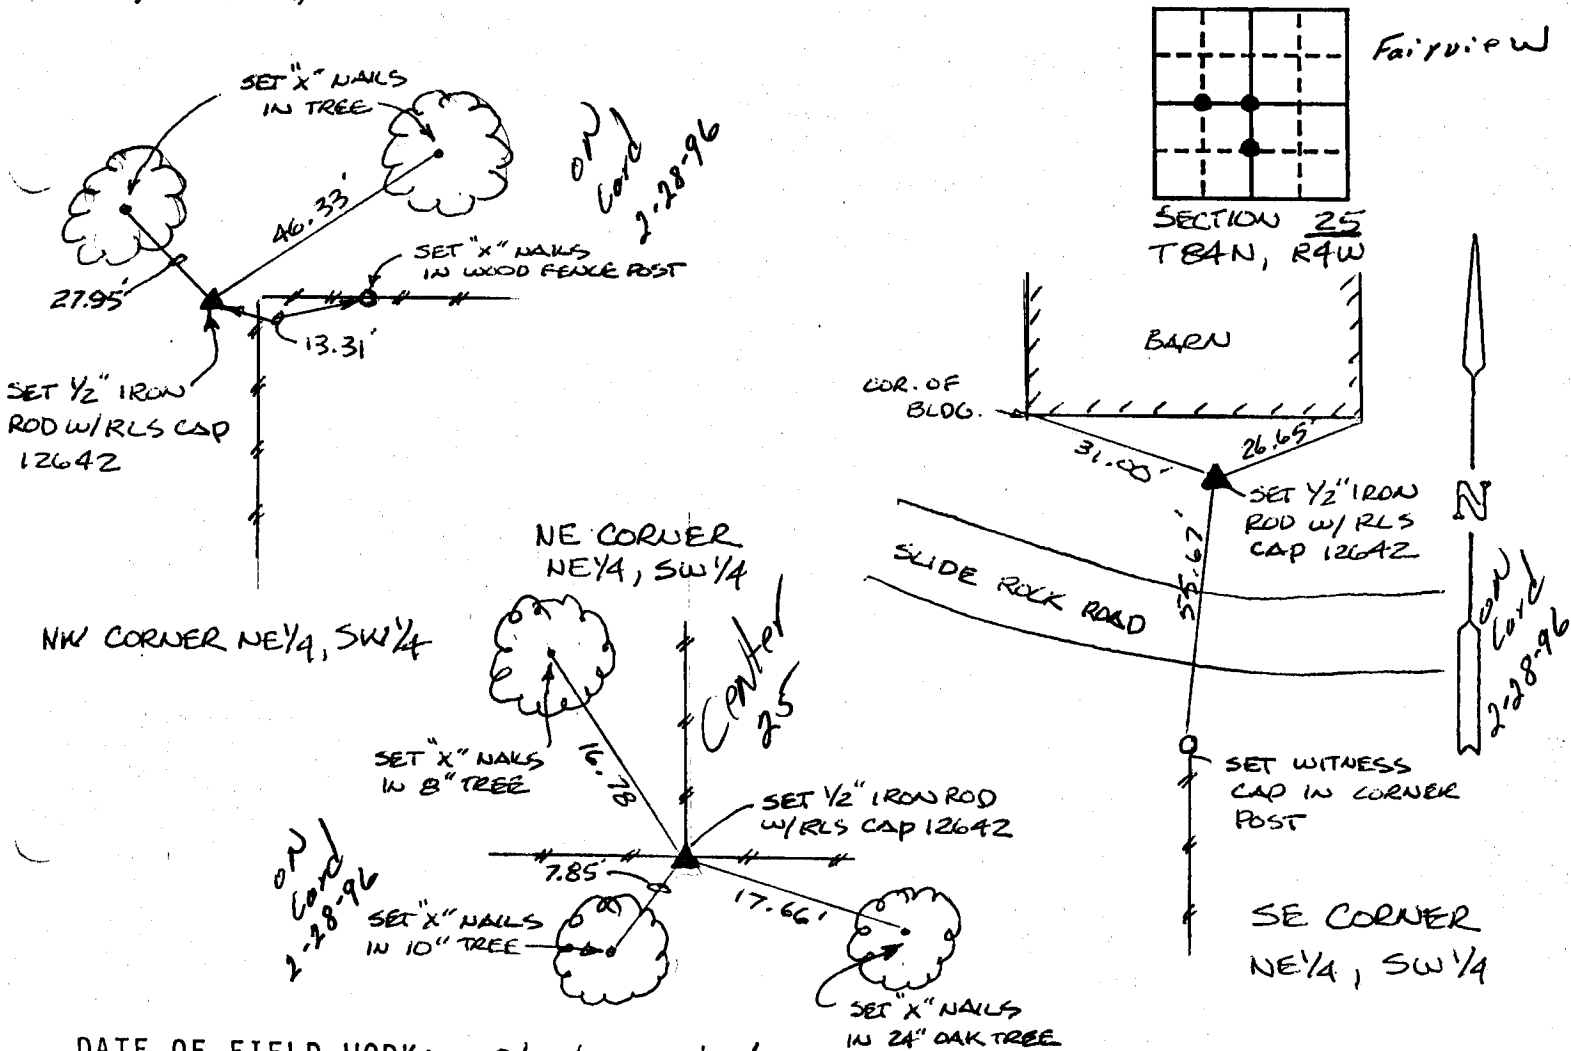 Fairview
SECTION 25
T84N, R4W
SET "X" NAILS
IN TREE
46.33'
27.95'
SET "X" NAILS
IN WOOD FENCE POST
13.31'
SET 1/2" IRON
ROD W/RLS CAP
12642
NW CORNER NE1/4, SW1/4
on
Card
2-28-96
BARN
COR. OF
BLDG.
31.00'
26.65'
SET 1/2" IRON
ROD W/ RLS
CAP 12642
55.67'
SLIDE ROCK ROAD
N
on
Card
2-28-96
SET WITNESS
CAP IN CORNER
POST
SE CORNER
NE1/4, SW1/4
NE CORNER
NE1/4, SW1/4
Center
25
SET "X" NAILS
IN 8" TREE
16.78
SET 1/2" IRON ROD
W/RLS CAP 12642
7.85'
17.66'
on
Card
2-28-96
SET "X" NAILS
IN 10" TREE
SET "X" NAILS
IN 24" OAK TREE
DATE OF FIELD WORK: